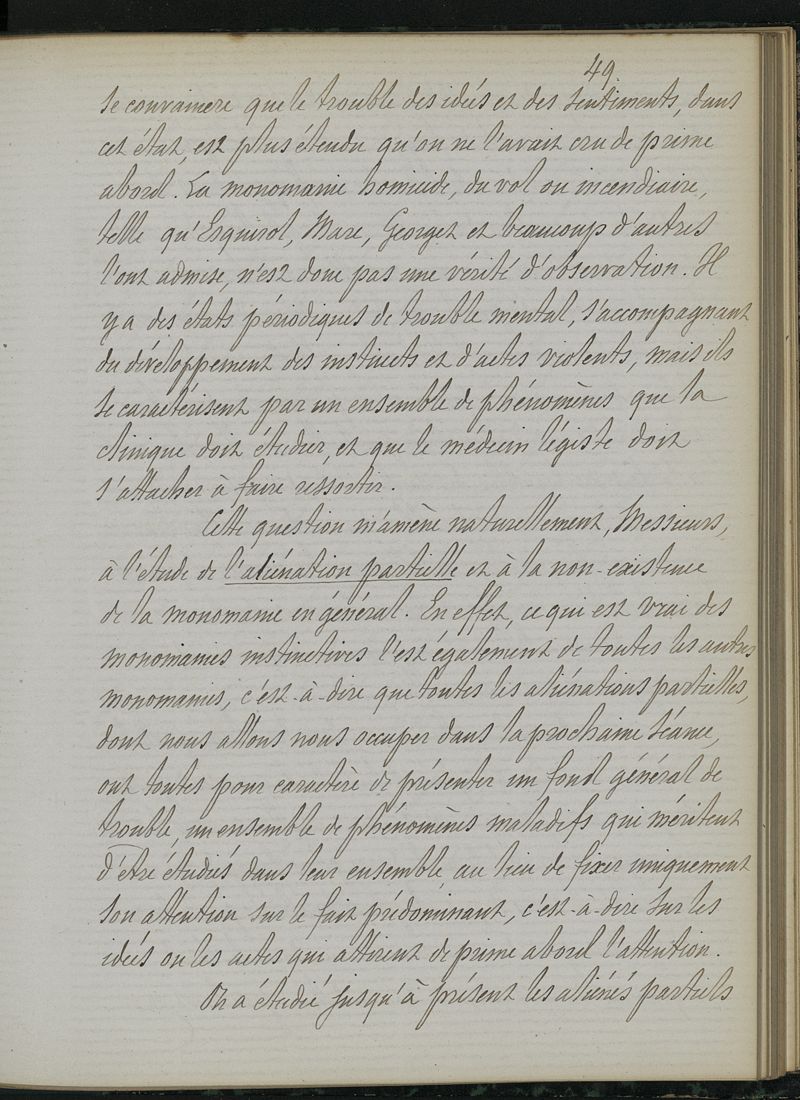 49
se convaincre que le trouble des idées et des sentiments, dans
cet état, est plus étendu qu'on ne l'avait cru de prime
abord. La monomanie homicide, du vol ou incendiaire,
telle qu'Esquirol, Marc, Georget et beaucoup d'autres
l'ont admise, n'est donc pas une vérité d'observation. Il
y a des états périodiques de trouble mental, s'accompagnant
du développement des instincts et d'actes violents, mais ils
se caractérisent par un ensemble de phénomènes que la
clinique doit étudier, et que le médecin légiste doit
s'attacher à faire ressortir.
Cette question m'amène naturellement, Messieurs,
à l'étude de l'aliénation partielle et à la non-existence
de la monomanie en général. En effet, ce qui est vrai des
monomanies instinctives l'est également de toutes les autres
monomanies, c'est-à-dire que toutes les aliénations partielles,
dont nous allons nous occuper dans la prochaine séance,
ont toutes pour caractère de présenter un fond général de
trouble, un ensemble de phénomènes maladifs qui méritent
d'être étudiés dans leur ensemble au lieu de fixer uniquement
son attention sur le fait prédominant, c'est-à-dire sur les
idées ou les actes qui attirent de prime abord l'attention.
On a étudié jusqu'à présent les aliénés partiels